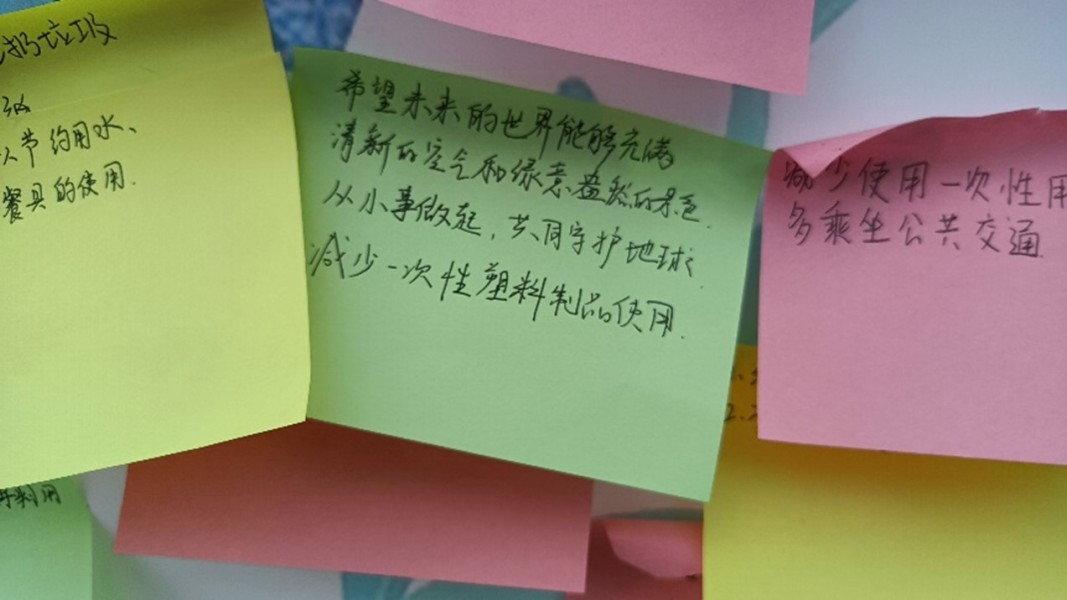 扔垃圾
圾
节约用水、
餐具的使用.
希望未来的世界能够充满
清新的空气和绿意盎然的景色.
从小事做起,共同守护地球.
减少一次性塑料制品使用.
减少使用一次性用
多乘坐公共交通
利用